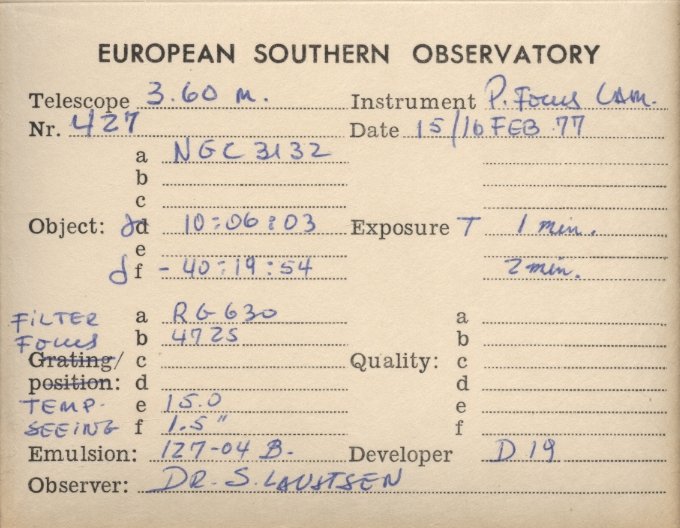 EUROPEAN SOUTHERN OBSERVATORY
Telescope 3.60 m. Instrument P. Focus Cam.
Nr. 427 Date 15/16 FEB 77
a NGC 3132
b
c
Object: α d 10:06:03 Exposure T 1 min.
e
δ f - 40:19:54 2 min.
FILTER a RG 630 a
Focus b 4725 b
Grating/ c Quality: c
position: d d
TEMP. e 15.0 e
SEEING f 1.5" f
Emulsion: 127-04 B. Developer D 19
Observer: DR. S. LAUSTSEN